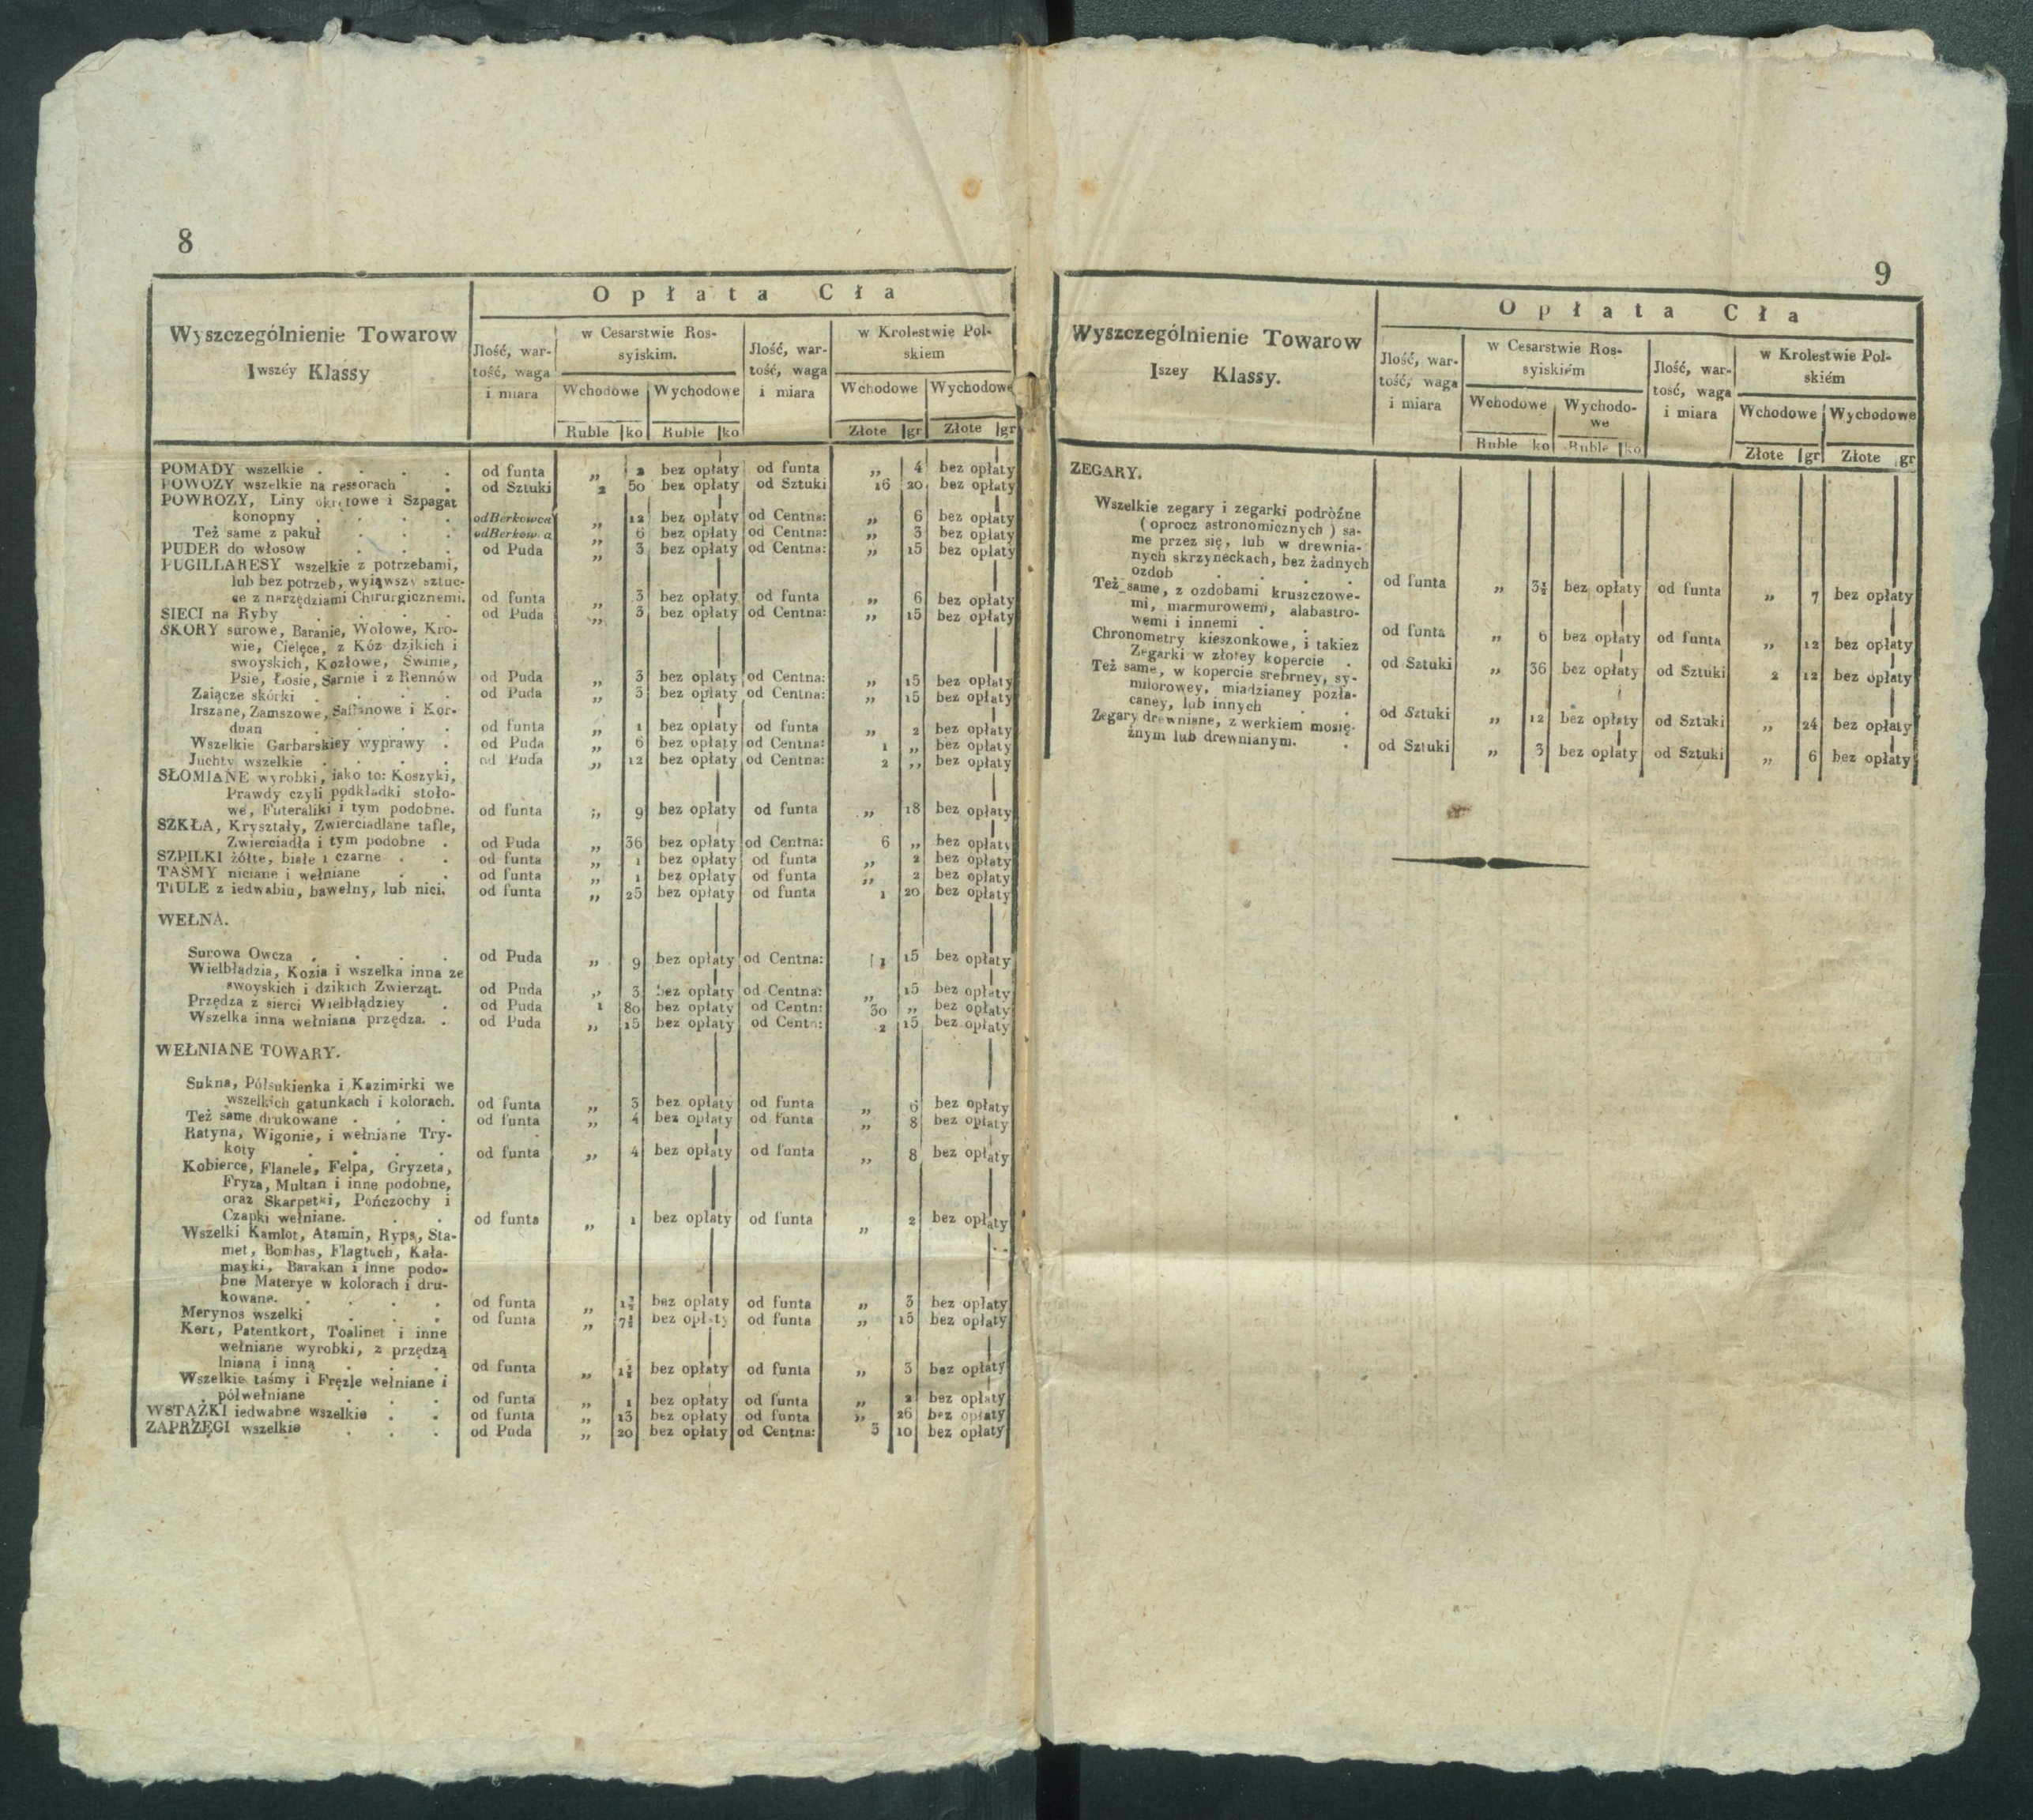 8
Wyszczególnienie Towarow
Iwszéy Klassy
Opłata Cła
Jlość, war-
tość, waga
i miara
w Cesarstwie Ros-
syiskim.
Wchodowe Wychodowe
Ruble ko Ruble ko
Jlość, war-
tość, waga
i miara
w Krolestwie Pol-
skiem
Wchodowe Wychodowe
Złote gr Złote gr
POMADY wszelkie . . . . od funta „ 2 bez opłaty od funta „ 4 bez opłaty
POWOZY wszelkie na ressorach . od Sztuki 2 50 bez opłaty od Sztuki 16 20 bez opłaty
POWROZY, Liny okrętowe i Szpagat
konopny . . . . od Berkowca „ 12 bez opłaty od Centna: „ 6 bez opłaty
Też same z pakuł . . . od Berkowca „ 6 bez opłaty od Centna: „ 3 bez opłaty
PUDER do włosow . . . od Puda „ 3 bez opłaty od Centna: „ 15 bez opłaty
PUGILLARESY wszelkie z potrzebami,
lub bez potrzeb, wyiąwszy sztuc-
ce z narzędziami Chirurgicznemi. od funta „ 3 bez opłaty od funta „ 6 bez opłaty
SIECI na Ryby . . . . od Puda „ 3 bez opłaty od Centna: „ 15 bez opłaty
SKORY surowe, Baranie, Wołowe, Kro-
wie, Cielęce, z Kóz dzikich i
swoyskich, Kozłowe, Swinie,
Psie, Łosie, Sarnie i z Rennów od Puda „ 3 bez opłaty od Centna: „ 15 bez opłaty
Zaiącze skórki . . . . od Puda „ 3 bez opłaty od Centna: „ 15 bez opłaty
Irszane, Zamszowe, Saffianowe i Kor-
duan . . . . od funta „ 1 bez opłaty od funta „ 2 bez opłaty
Wszelkie Garbarskiey wyprawy . od Puda „ 6 bez opłaty od Centna: 1 „ bez opłaty
Juchty wszelkie . . . . od Puda „ 12 bez opłaty od Centna: 2 „ bez opłaty
SŁOMIANE wyrobki, iako to: Koszyki,
Prawdy czyli podkładki stoło-
we, Futeraliki i tym podobne. od funta „ 9 bez opłaty od funta „ 18 bez opłaty
SZKŁA, Kryształy, Zwierciadlane tafle,
Zwierciadła i tym podobne . od Puda „ 36 bez opłaty od Centna: 6 „ bez opłaty
SZPILKI żółte, białe i czarne . . od funta „ 1 bez opłaty od funta „ 2 bez opłaty
TAŚMY niciane i wełniane . . od funta „ 1 bez opłaty od funta „ 2 bez opłaty
TIULE z iedwabiu, bawełny, lub nici. od funta „ 25 bez opłaty od funta 1 20 bez opłaty
WEŁNA.
Surowa Owcza . . . . od Puda „ 9 bez opłaty od Centna: 1 15 bez opłaty
Wielbładzia, Kozia i wszelka inna ze
swoyskich i dzikich Zwierząt. od Puda „ 3 bez opłaty od Centna: „ 15 bez opłaty
Przędza z sierci Wielbłądziey . od Puda 1 80 bez opłaty od Centn: 30 „ bez opłaty
Wszelka inna wełniana przędza. . od Puda „ 15 bez opłaty od Centn: 2 15 bez opłaty
WEŁNIANE TOWARY.
Sukna, Półsukienka i Kazimirki we
wszelkich gatunkach i kolorach. od funta „ 3 bez opłaty od funta „ 6 bez opłaty
Też same drukowane . . . od funta „ 4 bez opłaty od funta „ 8 bez opłaty
Ratyna, Wigonie, i wełniane Try-
koty . . . . od funta „ 4 bez opłaty od funta „ 8 bez opłaty
Kobierce, Flanele, Felpa, Gryzeta,
Fryza, Multan i inne podobne,
oraz Skarpetki, Pończochy i
Czapki wełniane. . . od funta „ 1 bez opłaty od funta „ 2 bez opłaty
Wszelki Kamlot, Atamin, Ryps, Sta-
met, Bombas, Flagtuch, Kała-
mayki, Barakan i inne podo-
bne Materye w kolorach i dru-
kowane. . . . . od funta „ 1½ bez opłaty od funta „ 3 bez opłaty
Merynos wszelki . . . od funta „ 7½ bez opłaty od funta „ 15 bez opłaty
Kort, Patentkort, Toalinet i inne
wełniane wyrobki, z przędzą
lnianą i inną . . . od funta „ 1½ bez opłaty od funta „ 3 bez opłaty
Wszelkie taśmy i Fręzle wełniane i
półwełniane . . . od funta „ 1 bez opłaty od funta „ 2 bez opłaty
WSTĄŻKI iedwabne wszelkie . . od funta „ 13 bez opłaty od funta „ 26 bez opłaty
ZAPRZĘGI wszelkie . . . od Puda „ 20 bez opłaty od Centna: 3 10 bez opłaty
9
Wyszczególnienie Towarow
Iszey Klassy.
Opłata Cła
Jlość, war-
tość, waga
i miara
w Cesarstwie Ros-
syiskiém
Wchodowe Wychodo-
we
Ruble ko Ruble ko
Jlość, war-
tość, waga
i miara
w Krolestwie Pol-
skiém
Wchodowe Wychodowe
Złote gr Złote gr
ZEGARY.
Wszelkie zegary i zegarki podróżne
(oprocz astronomicznych) sa-
me przez się, lub w drewnia-
nych skrzyneckach, bez żadnych
ozdob . . . . od funta „ 3½ bez opłaty od funta „ 7 bez opłaty
Też same, z ozdobami kruszczowe-
mi, marmurowemi, alabastro-
wemi i innemi . . od funta „ 6 bez opłaty od funta „ 12 bez opłaty
Chronometry kieszonkowe, i takiez
Zegarki w złotey kopercie . od Sztuki „ 36 bez opłaty od Sztuki 2 12 bez opłaty
Też same, w kopercie srebrney, sy-
milorowey, miadzianey pozła-
caney, lub innych . . od Sztuki „ 12 bez opłaty od Sztuki „ 24 bez opłaty
Zegary drewniane, z werkiem mosię-
żnym lub drewnianym. . od Sztuki „ 3 bez opłaty od Sztuki „ 6 bez opłaty